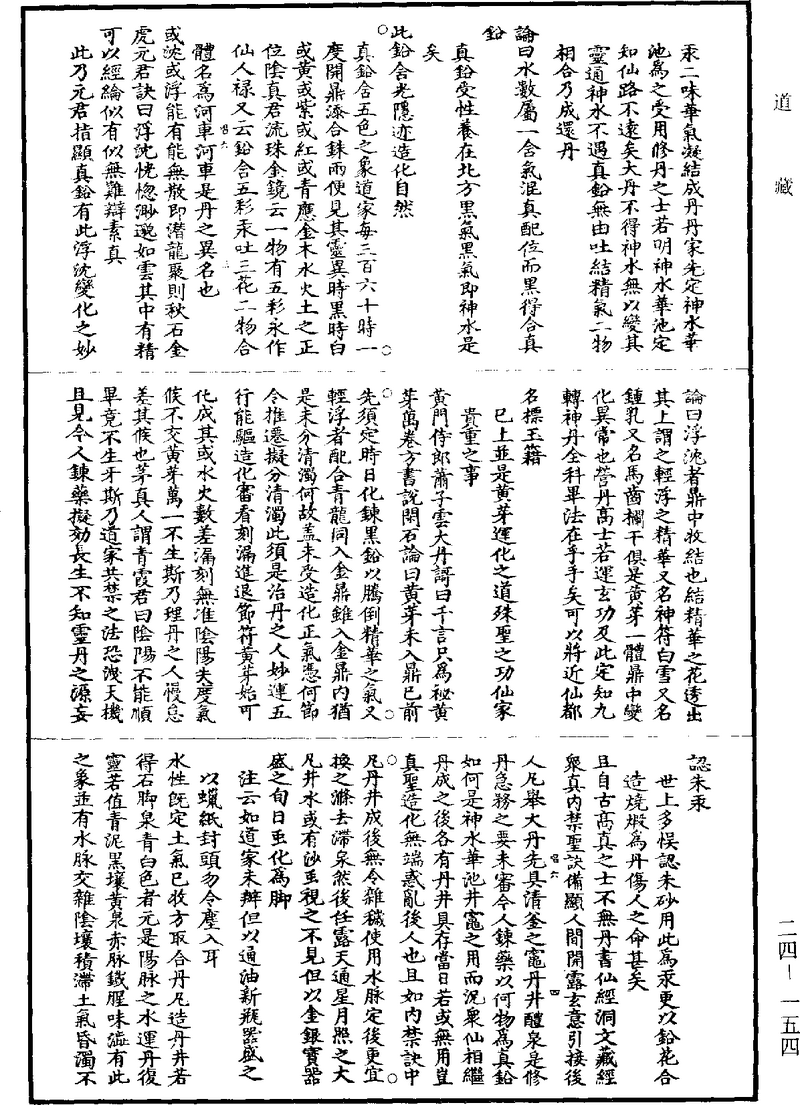 道藏
汞二味華氣凝結成丹丹家先定神水華
池為之受用修丹之士若明神水華池定
知仙路不遠矣大丹不得神水無以變其
靈通神水不遇真鉛無由吐結精氣二物
相合乃成還丹
論曰水數屬一含氣混真配位而黑得合真
鉛
真鉛受性養在北方黑氣黑氣即神水是
矣
此鉛含光隱迹造化自然
真鉛含五色之象道家每三百六十時一
度開鼎添合銖兩便見其靈異時黑時白
或黃或紫或紅或青應金木水火土之正
位陰真君流珠金鏡云一物有五彩永作
仙人祿又云鉛含五彩汞吐三花二物合
體名為河車河車是丹之異名也
或沈或浮能有能無散即潛龍聚則秋石金
虎元君訣曰浮沈恍惚渺邈如雲其中有精
可以經綸似有似無難辯素真
此乃元君指顯真鉛有此浮沈變化之妙
論曰浮沈者鼎中收結也結精華之花透出
其上謂之輕浮之精華又名神符白雪又名
鍾乳又名馬齒欄干俱是黃芽一體鼎中變
化異常也營丹高士若運玄功及此定知九
轉神丹全科畢法在乎手矣可以將近仙都
名標玉籍
已上並是黃芽運化之道殊聖之功仙家
貴重之事
黃門侍郎蕭子雲大丹謌曰千言只為秘黃
芽萬卷方書說閑石論曰黃芽未入鼎已前
先須定時日化鍊黑鉛以騰倒精華之氣又
輕浮者配合青龍同入金鼎雖入金鼎內猶
是未分清濁何故盖未受造化正氣憑何節
令推遷擬分清濁此須是治丹之人妙運五
行能驅造化審看刻漏進退節符黃芽始可
化成其或水火數差漏刻無准陰陽失度氣
候不交黃芽萬一不生斯乃理丹之人慢怠
差其候也茅真人謂青霞君曰陰陽不能順
畢竟不生牙斯乃道家共禁之法恐洩天機
且見今人鍊藥擬効長生不知靈丹之源妄
認朱汞
世上多悮認朱砂用此為汞更以鉛花合
造燒煅為丹傷人之命甚矣
且自古高真之士不無丹書仙經洞文藏經
衆真內禁聖訣備顯人間開露玄意引接後
人凡舉大丹先具清釜之竈丹井醴泉是修
丹急務之要未審今人鍊藥以何物為真鉛
如何是神水華池井竈之用而況衆仙相繼
丹成之後各有丹井具存當日若或無用豈
真聖造化無端惑亂後人也且如內禁訣中
凡丹井成後無令雜穢使用水脉定後更宜
換之滌去滯泉然後任露天通星月照之大
凡井水或有沙虱視之不見但以金銀寶器
盛之旬日虱化為脚
注云如道家未辦但以通油新瓶器盛之
以蠟紙封頭勿令塵入耳
水性既定土氣已收方取合丹凡造丹井若
得石脚泉青白色者元是陽脉之水運丹復
靈若值青泥黑壤黃泉赤脉鐵腥味澁有此
之象並有水脉交雜陰壤積滯土氣昏濁不
二四－一五四